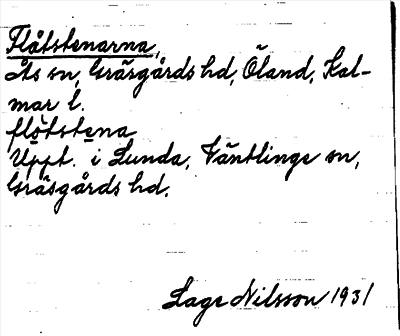 Flåtstenarna,
Ås sn, Gräsgårds hd, Öland, Kal-
mar l.
flötstena
Uppt. i Lunda, Väntlinge sn,
Gräsgårds hd.
Lage Nilsson 1931